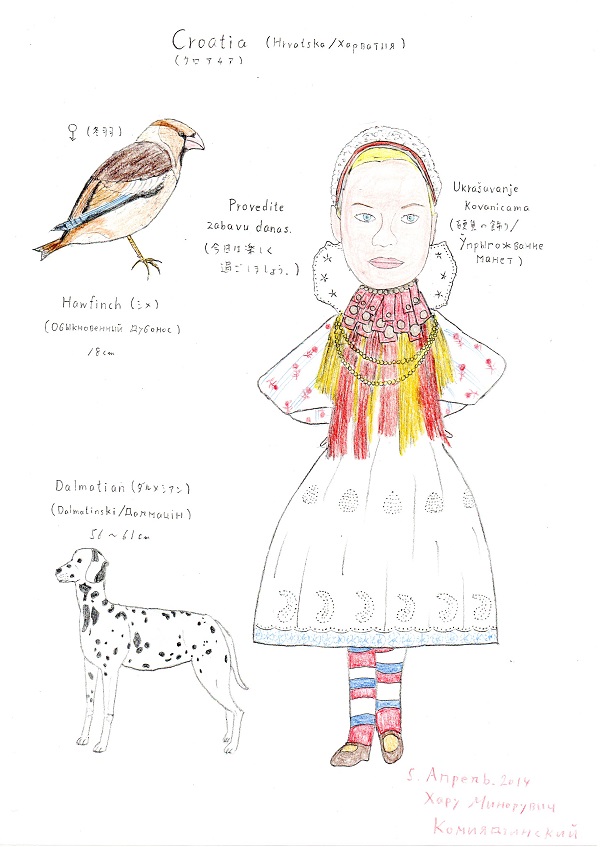 Croatia (Hrvatska/Хорватия)
(クロアチア)
♂ (冬羽)
Provedite
zabavu danas.
(今日は楽しく
過ごしましょう。)
Ukrašavanje
Kovanicama
(硬貨の飾り/
манет)
Hawfinch (シメ)
(Обыкновенный Дубонос)
18cm
Dalmatian (ダルメシアン)
(Dalmatinski/Далмацін)
56~61cm
5. Апрель. 2014
Хару Минорувич